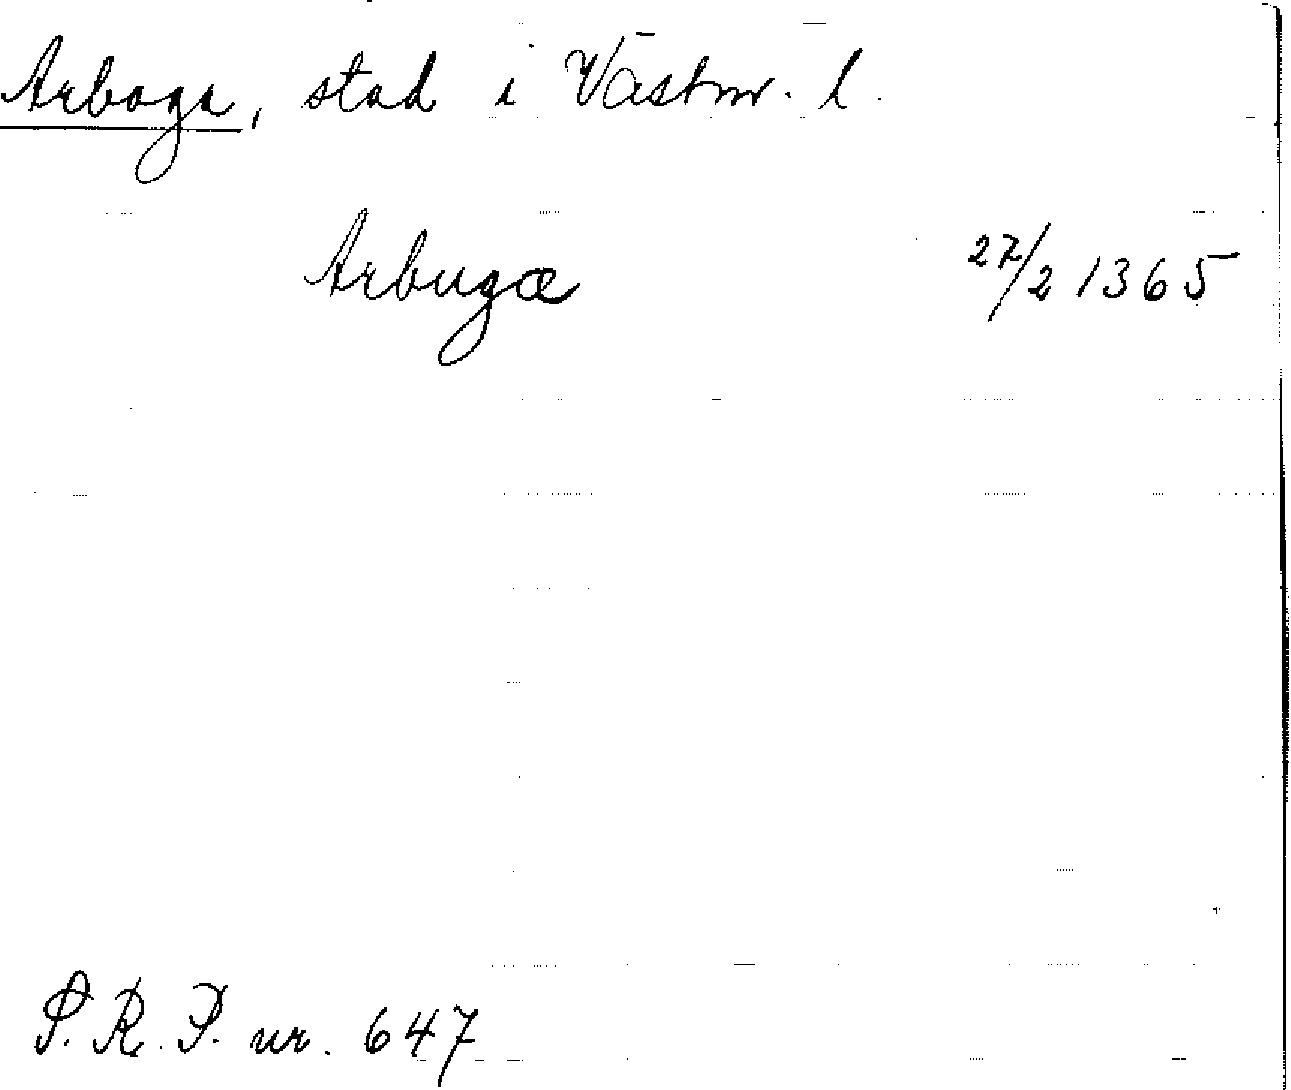 Arboga, stad i Västm. l.
Arbugæ 27/2 1365
P. R. P. nr. 647